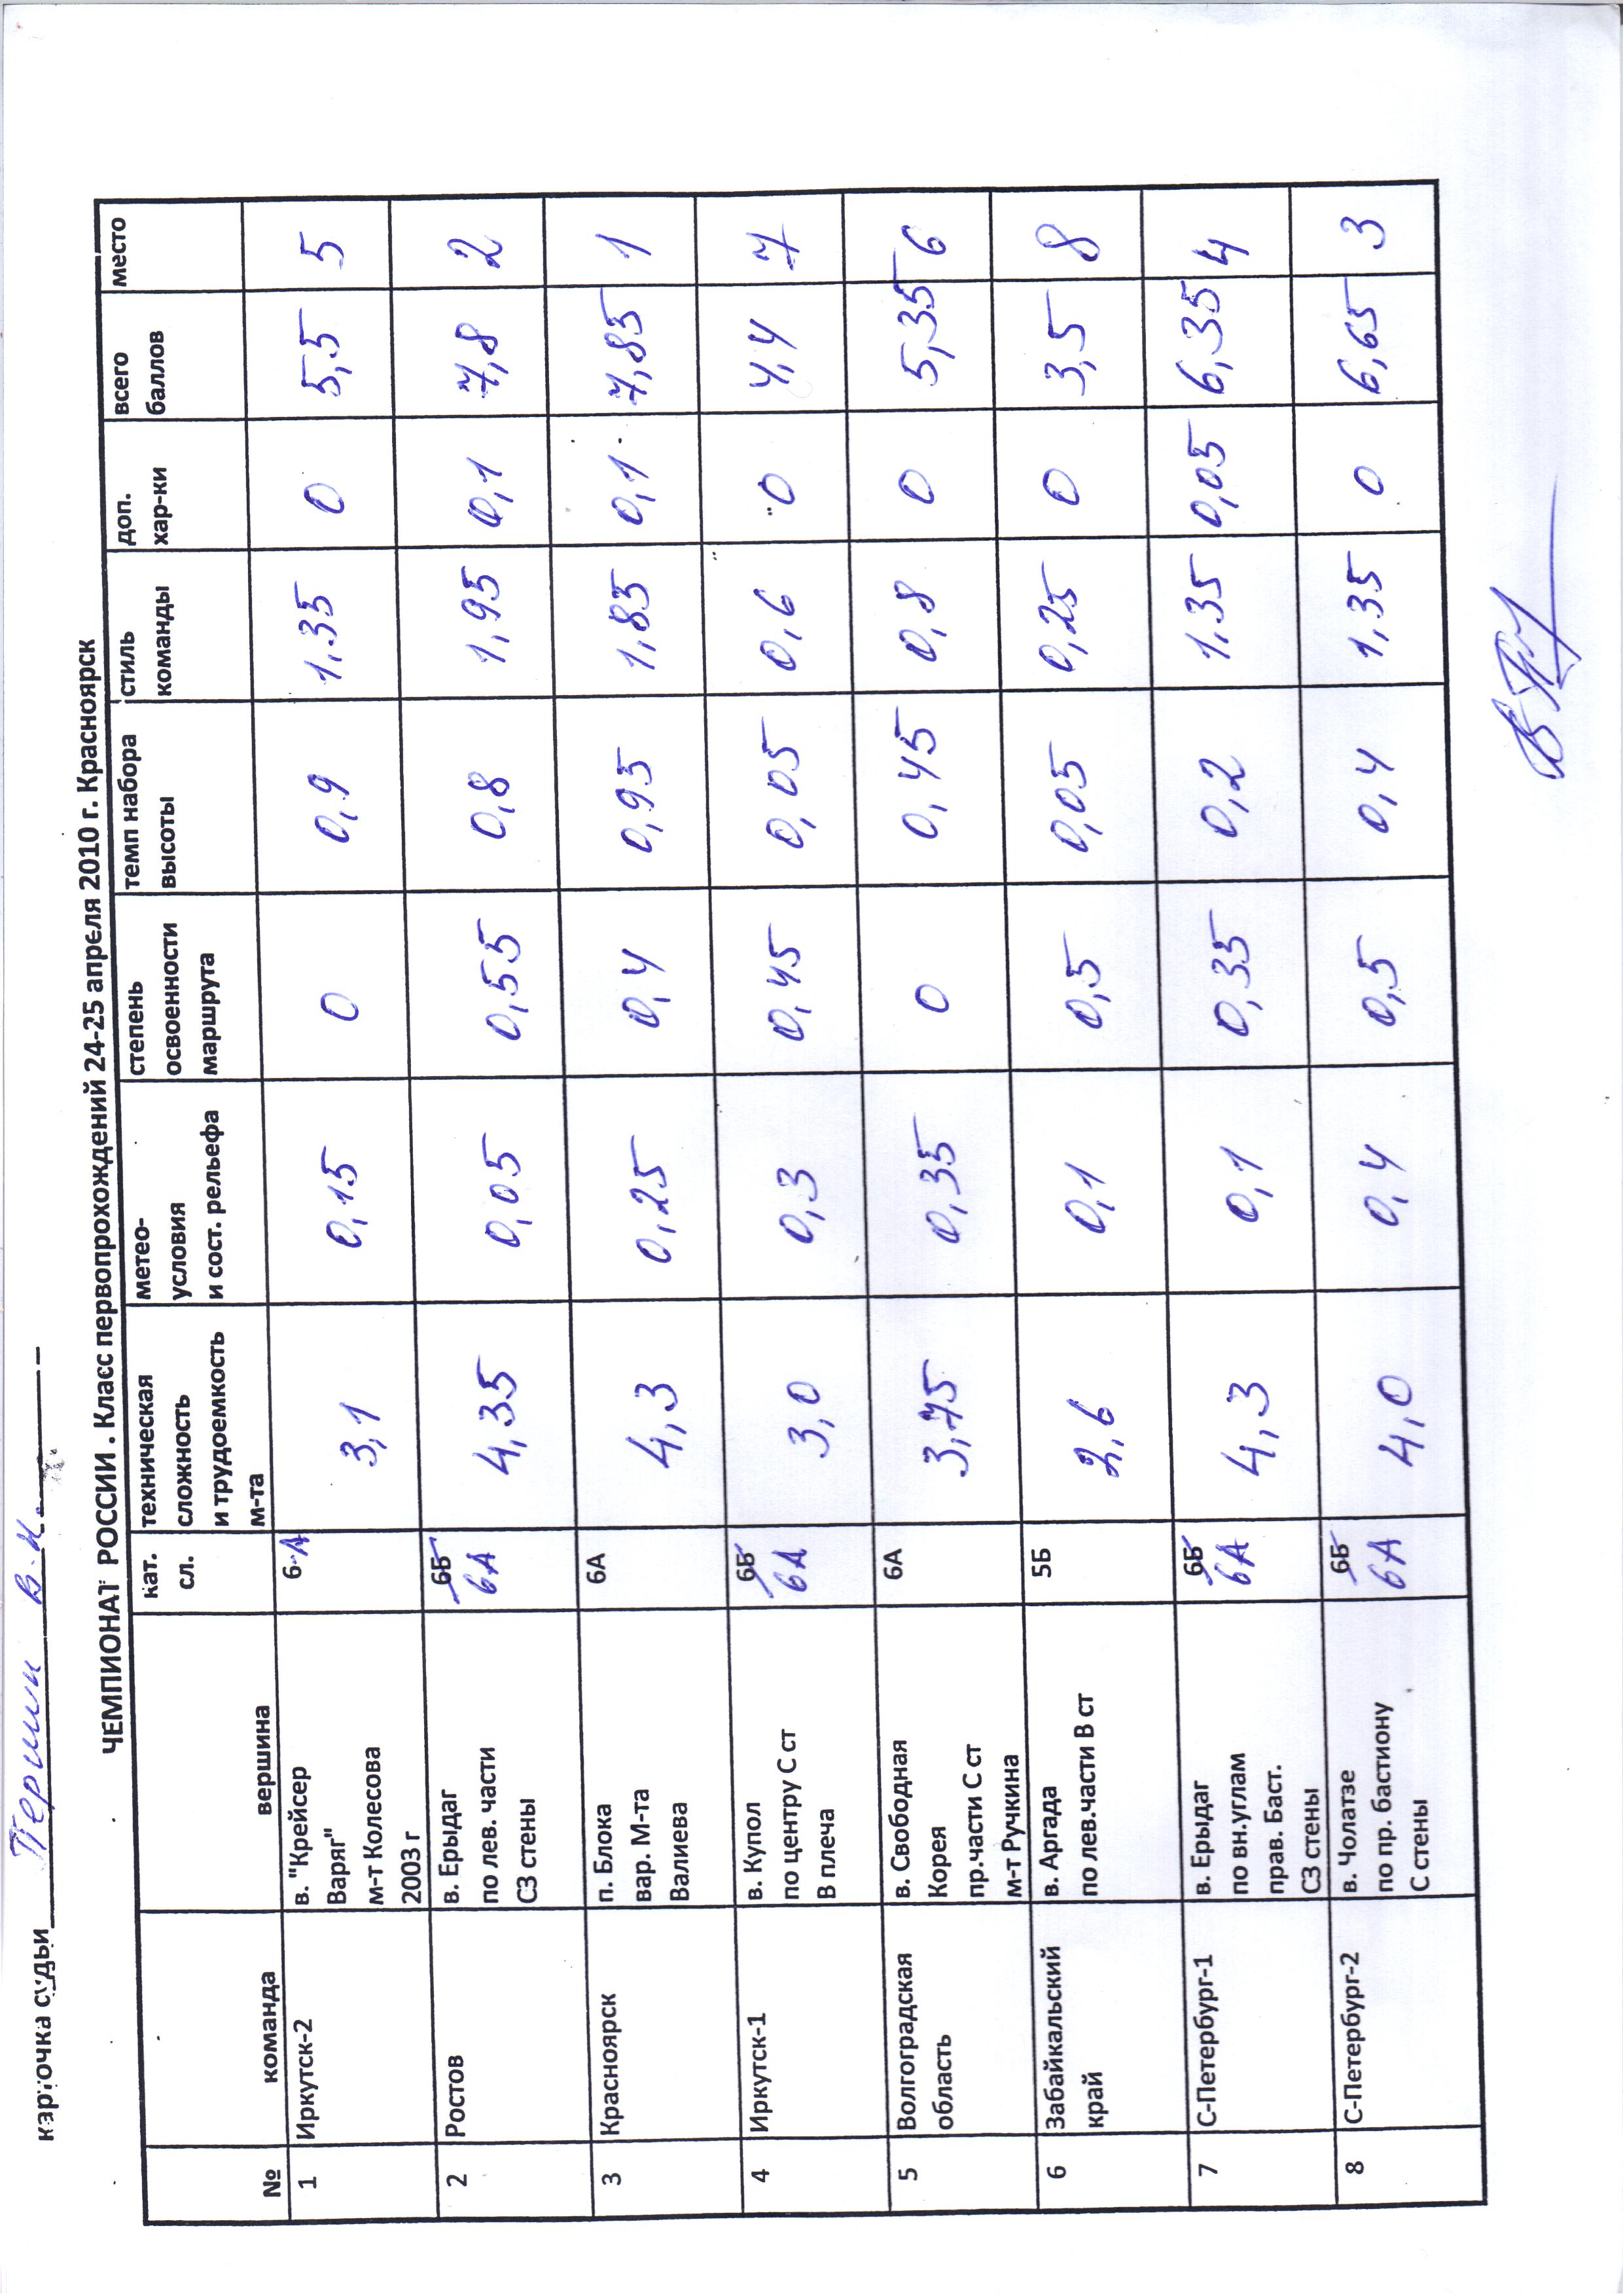 карточка судьи Першин В.Н.
ЧЕМПИОНАТ РОССИИ . Класс первопрохождений 24-25 апреля 2010 г. Красноярск
№ команда вершина кат. сл. техническая сложность и трудоемкость м-та метео- условия и сост. рельефа степень освоенности маршрута темп набора высоты стиль команды доп. хар-ки всего баллов место
1 Иркутск-2 в. "Крейсер 6А 3,1 0,15 0 0,9 1.35 0 5,5 5
Варяг"
м-т Колесова
2003 г
2 Ростов в. Ерыдаг 6Б 4,35 0,05 0,55 0,8 1,95 0,1 7,8 2
по лев. части 6А
СЗ стены
3 Красноярск п. Блока 6А 4,3 0,25 0,4 0,95 1,85 0,1 7,85 1
вар. М-та
Валиева
4 Иркутск-1 в. Купол 6Б 3,0 0,3 0,45 0,05 0,6 0 4,4 7
по центру С ст 6А
В плеча
5 Волгоградская в. Свободная 6А 3,75 0,35 0 0,45 0,8 0 5,35 6
область Корея
пр.части С ст
м-т Ручкина
6 Забайкальский в. Аргада 5Б 2,6 0,1 0,5 0,05 0,25 0 3,5 8
край по лев.части В ст
7 С-Петербург-1 в. Ерыдаг 6Б 4,3 0,1 0,35 0,2 1.35 0,05 6,35 4
по вн.углам 6А
прав. Баст.
СЗ стены
8 С-Петербург-2 в. Чолатзе 6Б 4,0 0,4 0,5 0,4 1,35 0 6,65 3
по пр. бастиону 6А
С стены